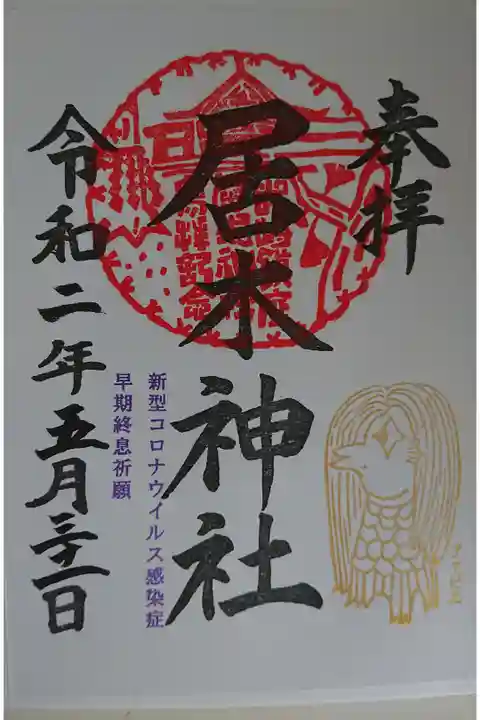 奉拝
居木神社
新型コロナウイルス感染症
早期終息祈願
令和二年五月三十一日
アマビエ